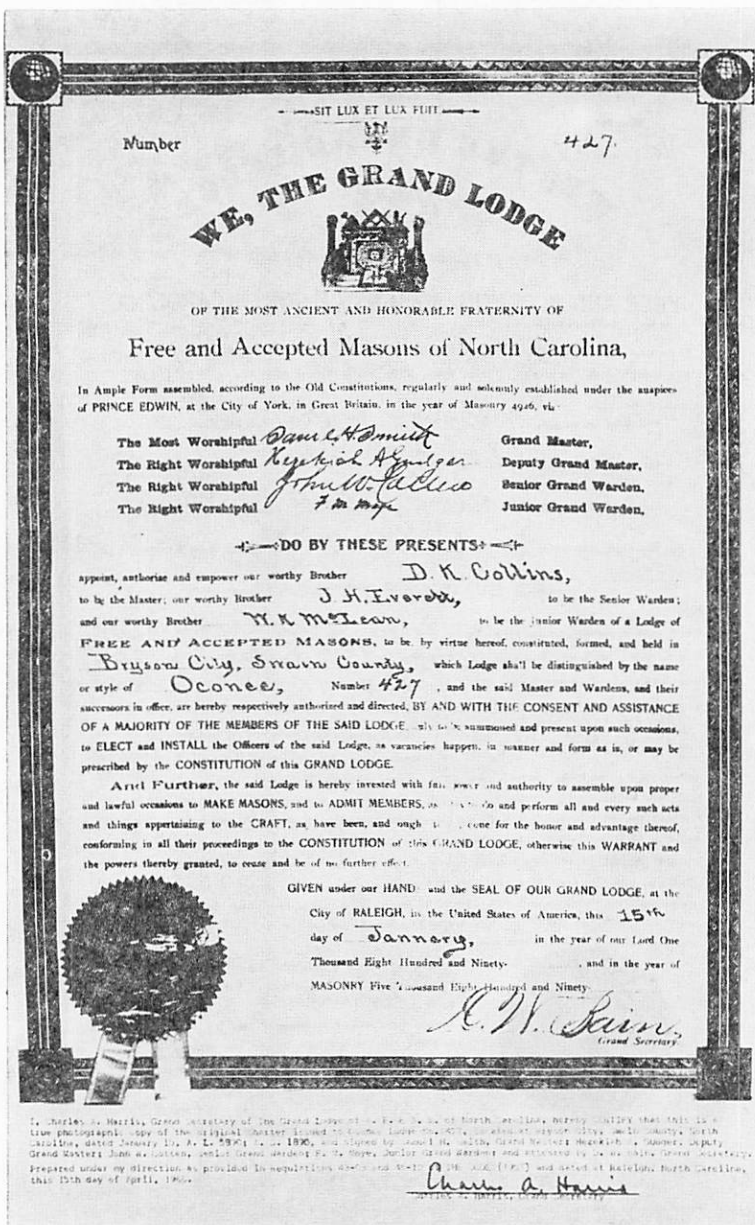 SIT LUX ET LUX FUIT
Number 427.
WE, THE GRAND LODGE
OF THE MOST ANCIENT AND HONORABLE FRATERNITY OF
Free and Accepted Masons of North Carolina,
In Ample Form assembled, according to the Old Constitutions, regularly and solemnly established under the auspices
of PRINCE EDWIN, at the City of York, in Great Britain, in the year of Masonry 4926, viz
The Most Worshipful Saml H. Smith Grand Master,
The Right Worshipful Hezekiah A Gudger Deputy Grand Master,
The Right Worshipful John W. Senior Grand Warden,
The Right Worshipful F M Junior Grand Warden,
DO BY THESE PRESENTS
appoint, authorise and empower our worthy Brother D. K. Collins,
to be the Master; our worthy Brother J. H. Everett, to be the Senior Warden;
and our worthy Brother W. K McLean, to be the Junior Warden of a Lodge of
FREE AND ACCEPTED MASONS, to be, by virtue hereof, constituted, formed, and held in
Bryson City, Swain County, which Lodge shall be distinguished by the name
or style of Oconee, Number 427, and the said Master and Wardens, and their
successors in office, are hereby respectively authorized and directed, BY AND WITH THE CONSENT AND ASSISTANCE
OF A MAJORITY OF THE MEMBERS OF THE SAID LODGE, to be summoned and present upon such occasions,
to ELECT and INSTALL the Officers of the said Lodge, as vacancies happen, in manner and form as is, or may be
prescribed by the CONSTITUTION of this GRAND LODGE.
And Further, the said Lodge is hereby invested with full power and authority to assemble upon proper
and lawful occasions to MAKE MASONS, and to ADMIT MEMBERS, as do and perform all and every such acts
and things appertaining to the CRAFT, as have been, and ough done for the honor and advantage thereof,
conforming in all their proceedings to the CONSTITUTION of this GRAND LODGE, otherwise this WARRANT and
the powers thereby granted, to cease and be of no further effect.
GIVEN under our HAND and the SEAL OF OUR GRAND LODGE, at the
City of RALEIGH, in the United States of America, this 15th
day of January, in the year of our Lord One
Thousand Eight Hundred and Ninety- , and in the year of
MASONRY Five Thousand Eight Hundred and Ninety-
Grand Secretary.
I, Charles A. Harris, Grand Secretary of the Grand Lodge of A. F. & A. M. of North Carolina, hereby certify that this is a
true photographic copy of the original Charter issued to Oconee Lodge No. 427, Bryson City, Swain County, North
Carolina, dated January 15, A. L. 5890; A. D. 1890, and signed by Samuel H. Smith, Grand Master; Hezekiah A. Gudger, Deputy
Grand Master; John W. Senior Grand Warden; F. M. Junior Grand Warden; and attested by D. W. Bain, Grand Secretary.
Prepared under my direction as provided in Regulations and dated at Raleigh, North Carolina,
this 15th day of April,
Charles A. Harris
Charles A. Harris, Grand Secretary